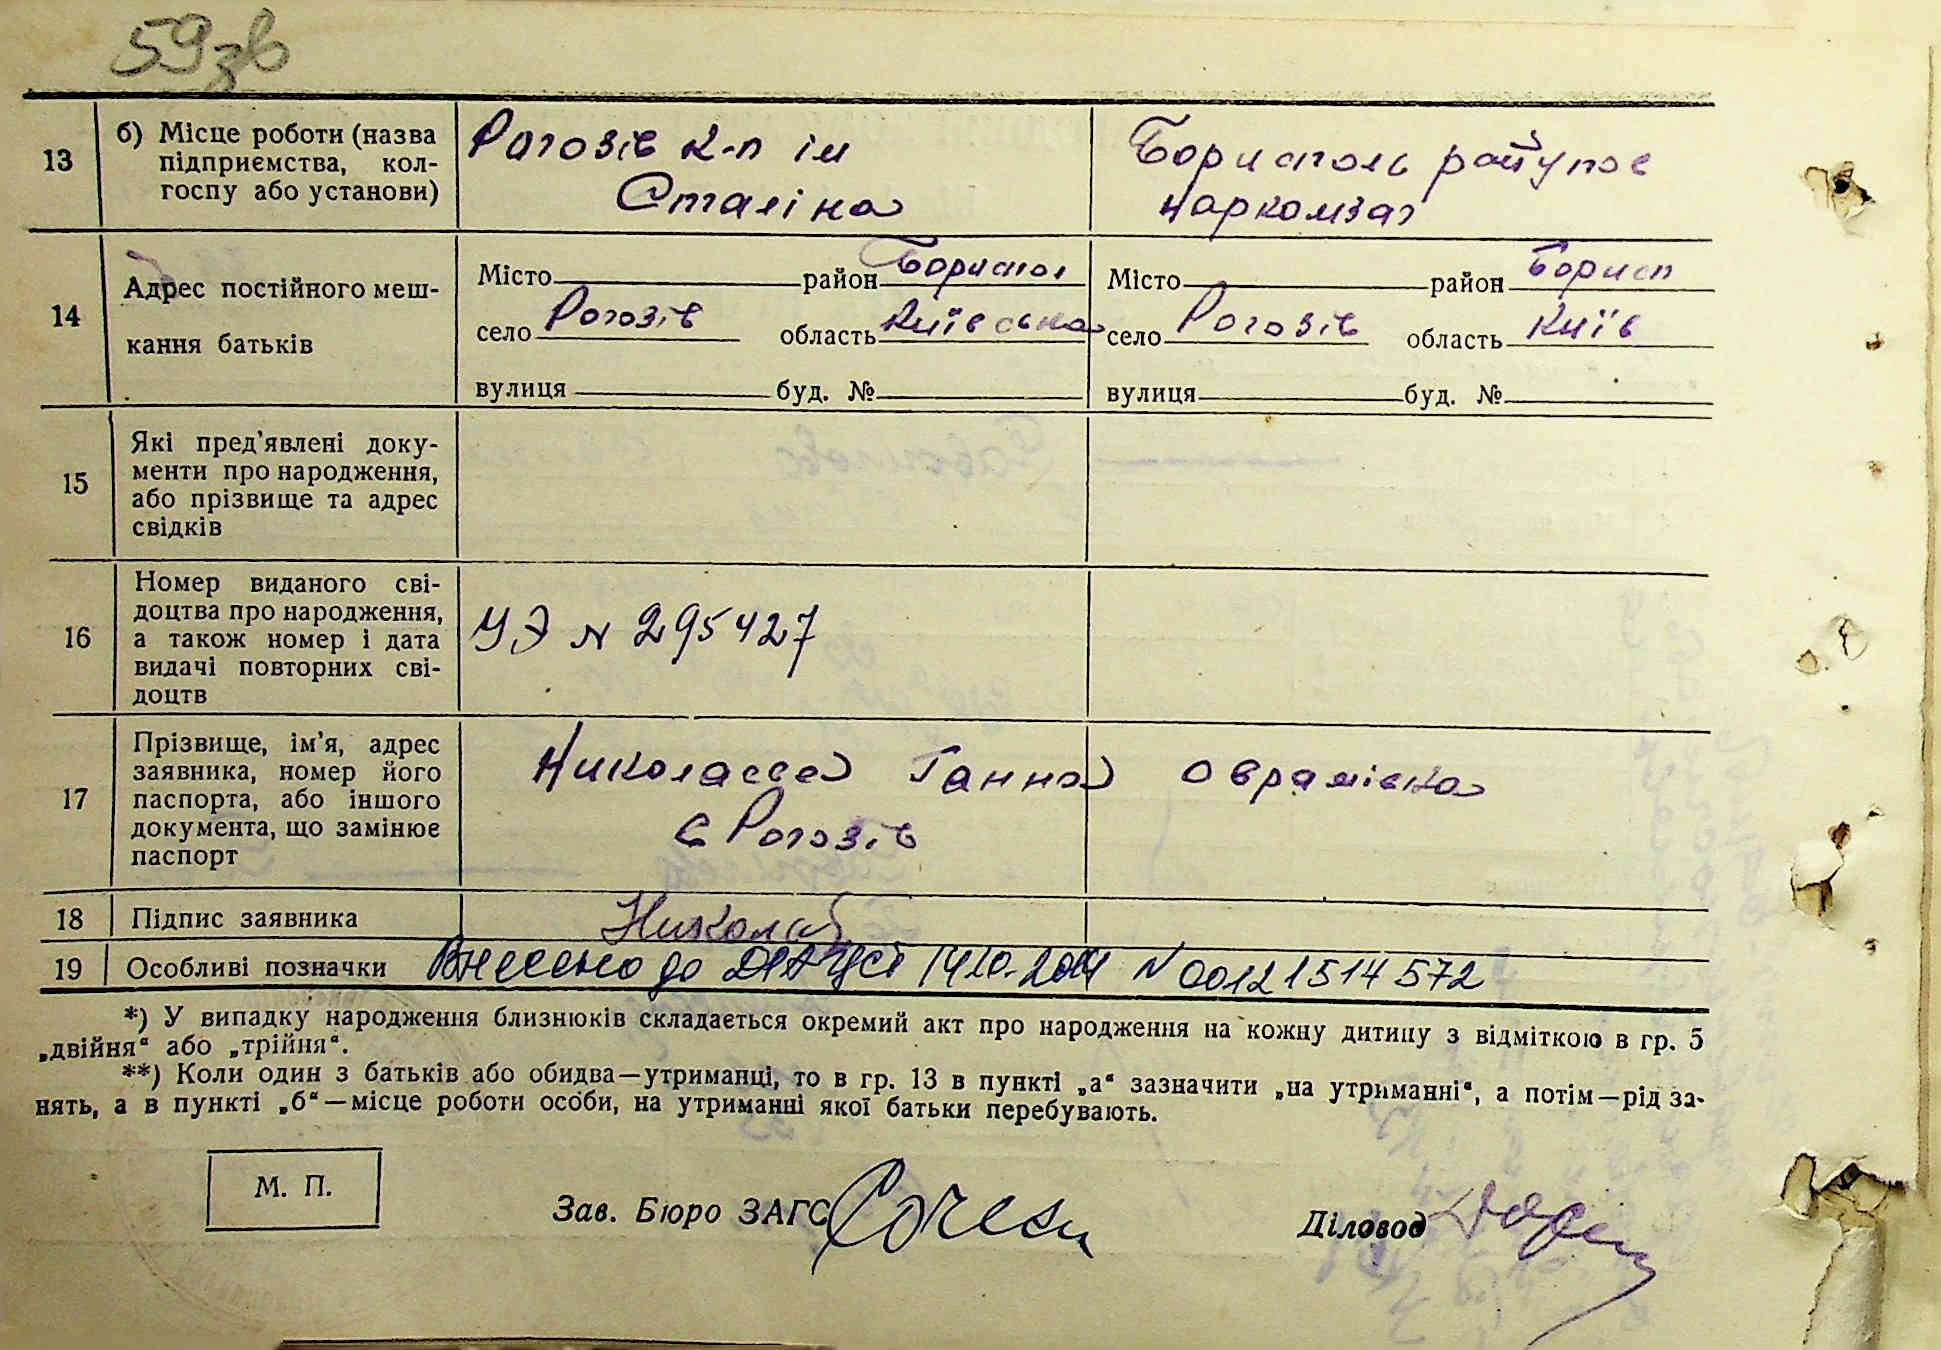 59зв
13
б) Місце роботи (назва
підприємства, кол-
госпу або установи)
Рогозів к-п ім
Сталіна
Бориспіль
наркомзаг
14
Адрес постійного меш-
кання батьків
Місто район Бориспол
село Рогозів область Київська
вулиця буд. №
Місто район Борисп
село Рогозів область Київ
вулиця буд. №
15
Які пред'явлені доку-
менти про народження,
або прізвище та адрес
свідків
16
Номер виданого сві-
доцтва про народження,
а також номер і дата
видачі повторних сві-
доцтв
УЭ N 295427
17
Прізвище, ім'я, адрес
заявника, номер його
паспорта, або іншого
документа, що замінює
паспорт
Ганна Оврамівна
с Рогозів
18 Підпис заявника
19 Особливі позначки Внесено до ДРАЦСГ N 00121514572
*) У випадку народження близнюків складається окремий акт про народження на кожну дитину з відміткою в гр. 5
„двійня“ або „трійня“.
**) Коли один з батьків або обидва—утриманці, то в гр. 13 в пункті „а“ зазначити „на утриманні“, а потім—рід за-
нять, а в пункті „б“—місце роботи особи, на утриманні якої батьки перебувають.
М. П.
Зав. Бюро ЗАГС
Діловод